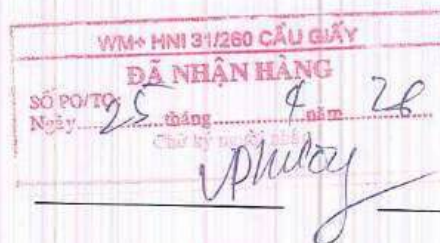 WM+ HNI 31/260 CẦU GIẤY
ĐÃ NHẬN HÀNG
SỐ PO/TO
Ngày 25 tháng 4 năm 26
Chữ ký người nhận